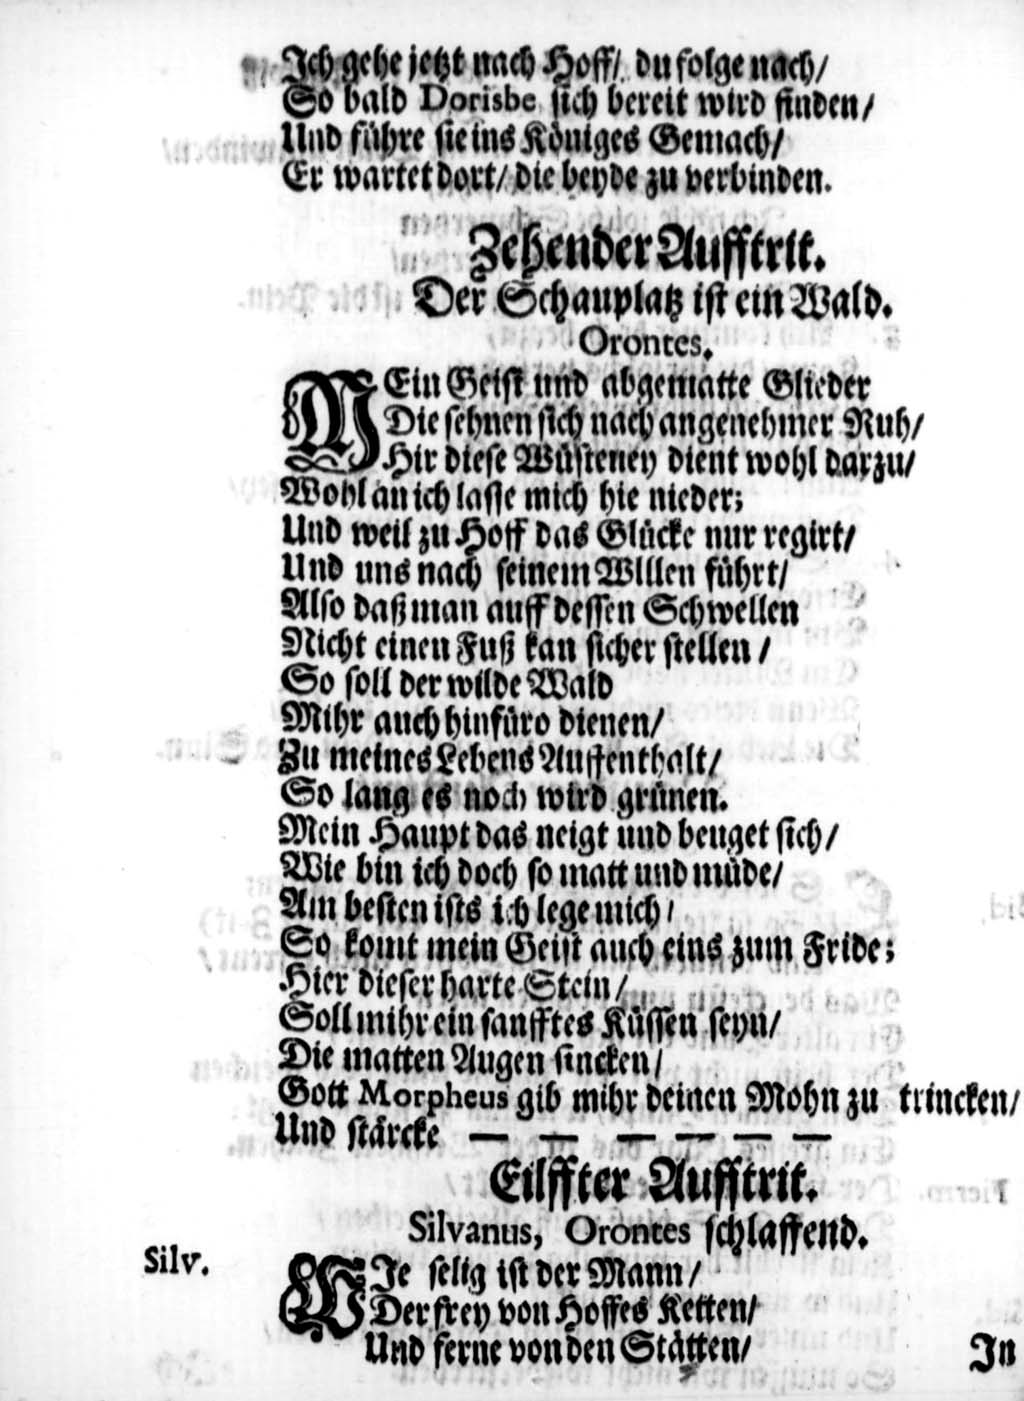 Ich gehe jetzt nach Hoff/ du folge nach/
So bald Dorisbe sich bereit wird finden/
Und führe sie ins Königes Gemach/
Er wartet dort/ die beyde zu verbinden.
Zehender Aufftrit.
Der Schauplatz ist ein Wald.
Orontes.
MEin Geist und abgematte Glieder
Die sehnen sich nach angenehmer Ruh/
Hir diese Wüsteney dient wohl darzu/
Wohl an ich lasse mich hie nieder;
Und weil zu Hoff das Glücke nur regirt/
Und uns nach seinem Wlllen führt/
Also daß man auff dessen Schwellen
Nicht einen Fuß kan sicher stellen/
So soll der wilde Wald
Mihr auch hinfüro dienen/
Zu meines Lebens Auffenthalt/
So lang es noch wird grünen.
Mein Haupt das neigt und beuget sich/
Wie bin ich doch so matt und müde/
Am besten ists ich lege mich/
So komt mein Geist auch eins zum Fride;
Hier dieser harte Stein/
Soll mihr ein sanfftes Küssen seyn/
Die matten Augen sincken/
Gott Morpheus gib mihr deinen Mohn zu trincken/
Und stärcke — — — — — —
Eilffter Aufftrit.
Silvanus, Orontes schlaffend.
Silv. WIe selig ist der Mann/
Der frey von Hoffes Ketten/
Und ferne von den Stätten/
In